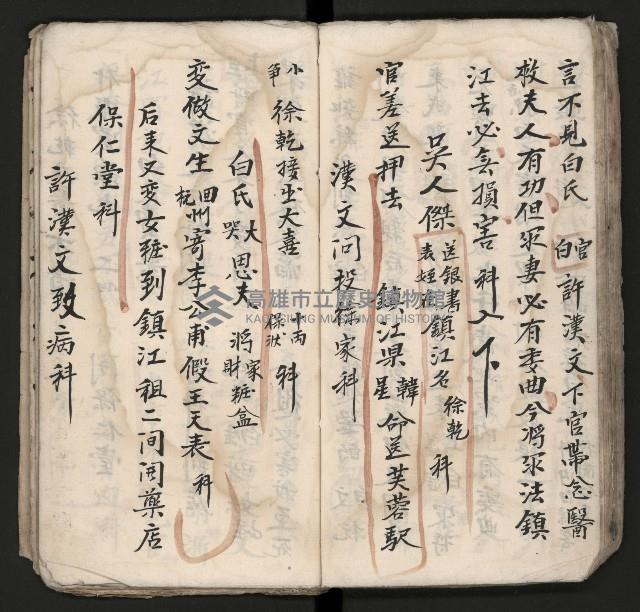 言不見白氏 官白 許漢文下官帶念醫
救夫人有功但冢妻必有委曲今將冢法鎮
江去必無損害 科 入下
吳人傑 送銀書 表姪 鎮江名 徐乾 科
官差送押去 鎮江県 韓星 命送芙蓉駅
漢文问投徐家科
小爭 徐乾接坐大喜 十両 保狀 科
白氏大哭思夫 將家財粧盒
変做文生 回杭州寄李公甫假王天表 科
后来又変女粧到鎮江祖二间開藥店
保仁堂科
許漢文致病科
高雄市立歷史博物館
KAOHSIUNG MUSEUM OF HISTORY